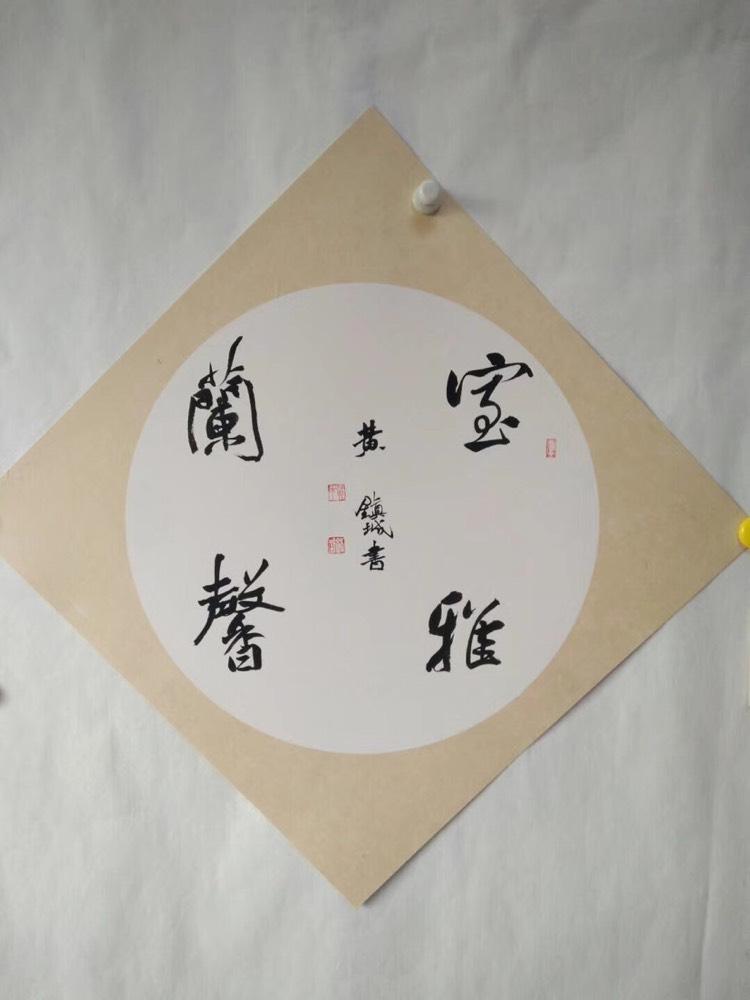 室雅
蘭馨
黄鎮城書